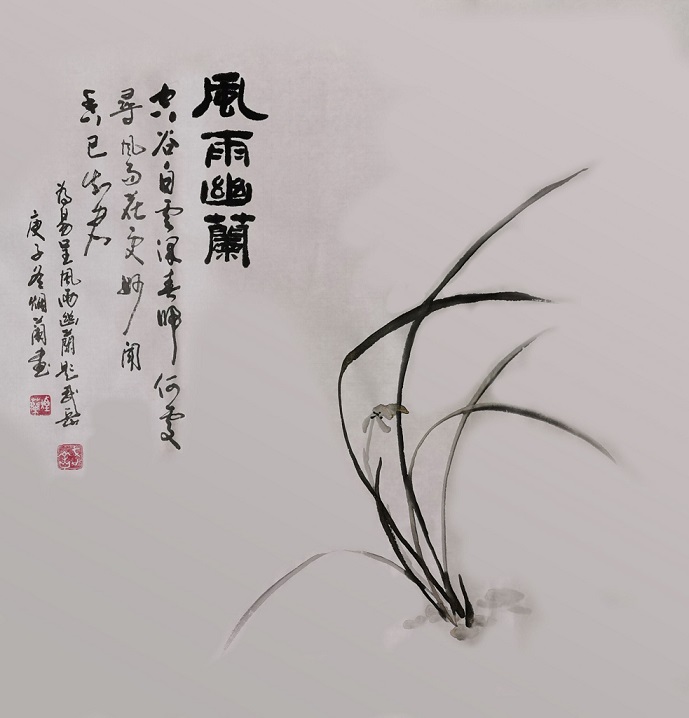 風雨幽蘭
空谷白雲深春歸何處
尋風雨花更妙聞
香已知君
為易呈風雨幽蘭題
庚子冬 蘭畫